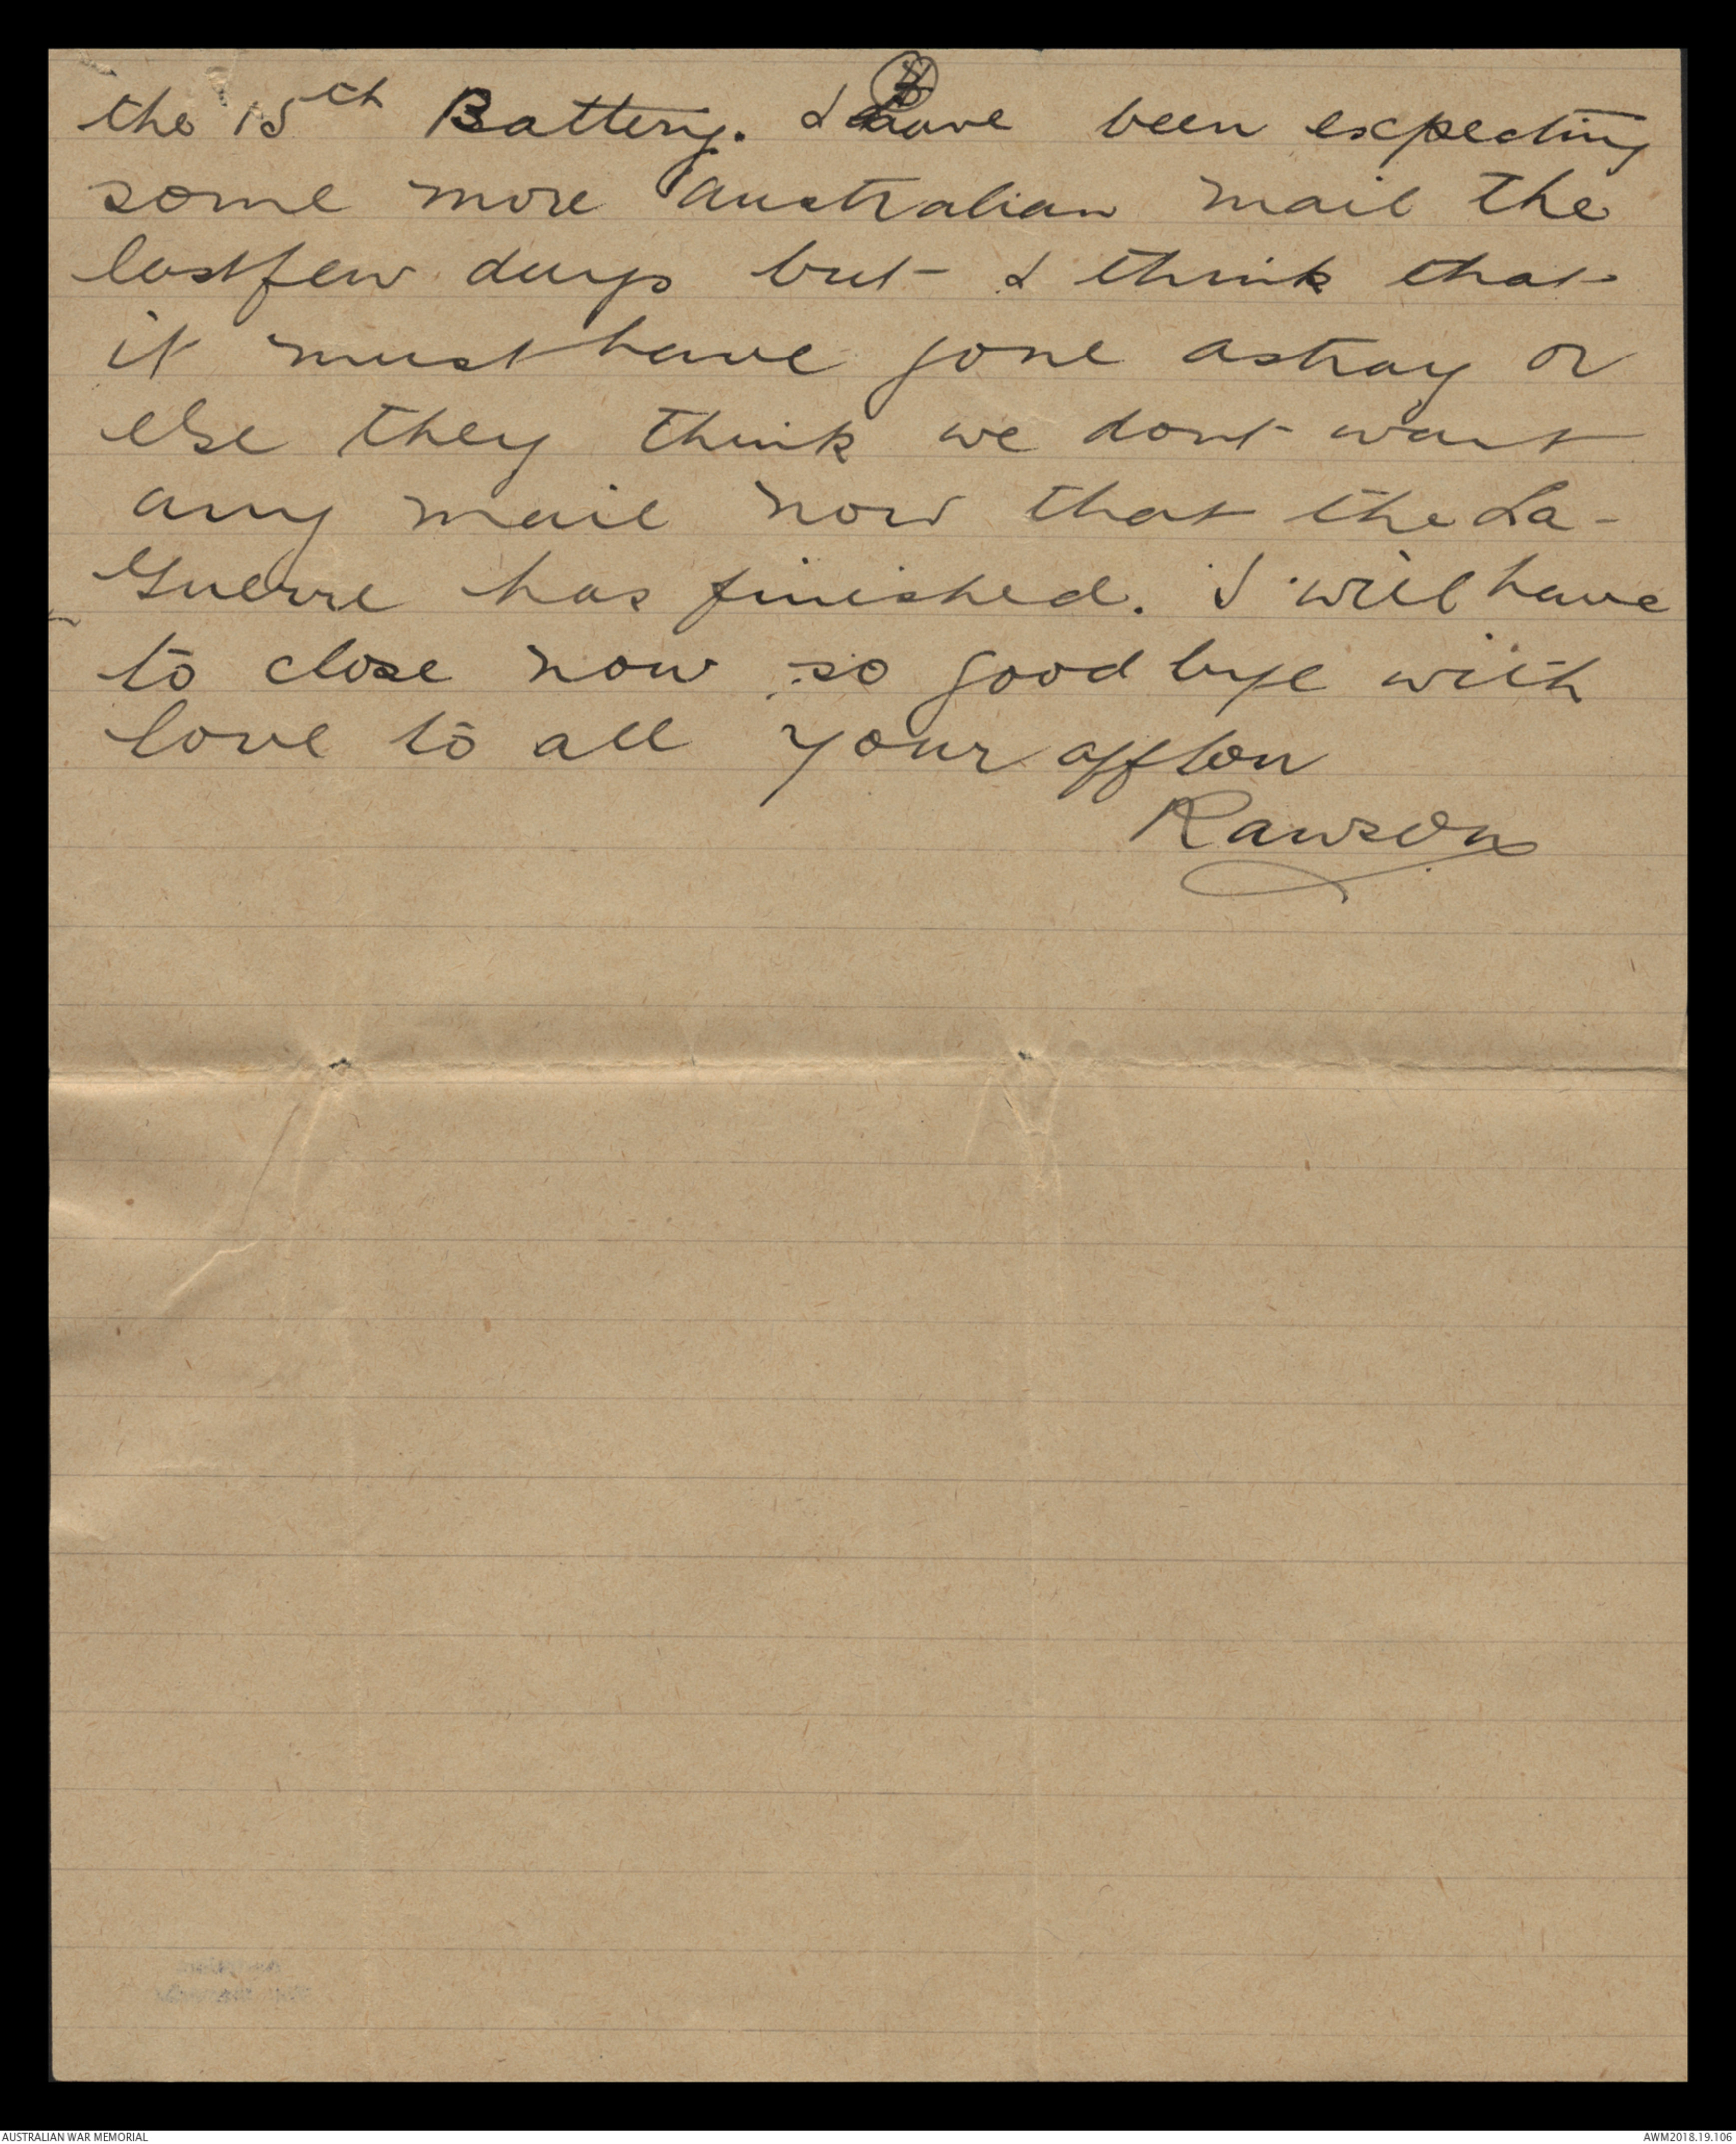 the 15th Battery. I have been expecting
some more Australian mail the
last few days but I think that
it must have gone astray or
else they think we dont want
any mail now that the La-
Guerre has finished. I will have
to close now so good bye with
love to all your aff son
Rawson
AUSTRALIAN WAR MEMORIAL
AWM2018.19.106